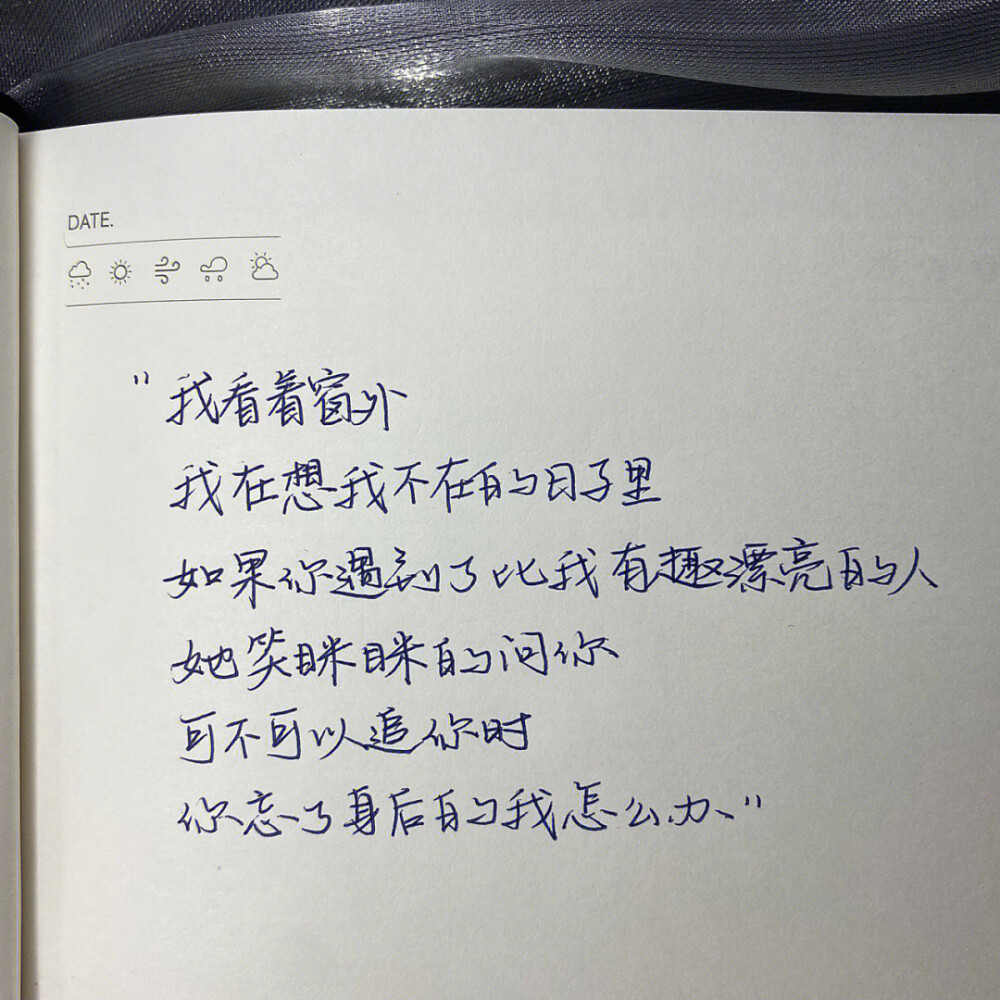 DATE.
"我看着窗外
我在想我不在的日子里
如果你遇到了比我有趣漂亮的人
她笑眯眯的问你
可不可以追你时
你忘了身后的我怎么办"